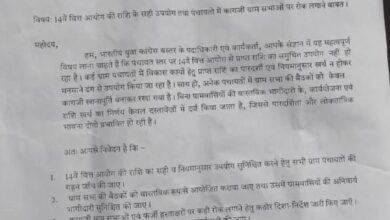 विषय: 14वें वित्त आयोग की राशि के सही उपयोग तथा पंचायतों में कागजी ग्राम सभाओं पर रोक लगाने बाबत।
महोदय,
हम, भारतीय युवा कांग्रेस बस्तर के पदाधिकारी एवं कार्यकर्ता, आपके संज्ञान में यह महत्वपूर्ण
विषय लाना चाहते हैं कि पंचायत स्तर पर 14वें वित्त आयोग से प्राप्त राशि का समुचित उपयोग नहीं हो
रहा है। कई ग्राम पंचायतों में विकास कार्यों हेतु प्राप्त राशि का पारदर्शी एवं नियमानुसार खर्च न होकर
मनमाने ढंग से उपयोग किया जा रहा है। साथ ही, अनेक पंचायतों में ग्राम सभा की बैठकों को केवल
कागजी खानापूर्ति बनाकर रखा गया है। बिना ग्रामवासियों की वास्तविक भागीदारी के, कार्ययोजना एवं
राशि खर्च का निर्णय केवल दस्तावेजों में दर्ज किया जाता है, जिससे पारदर्शिता और लोकतांत्रिक
भावना दोनों प्रभावित हो रही हैं।
अतः आपसे निवेदन है कि –
1. 14वें वित्त आयोग की राशि का सही व नियमानुसार उपयोग सुनिश्चित करने हेतु सभी ग्राम पंचायतों की
गहन जाँच की जाए।
2. ग्राम सभा की बैठकों को वास्तविक रूप से आयोजित कराया जाए तथा उसमें ग्रामवासियों की अनिवार्य
भागीदारी सुनिश्चित की जाए।
सभाओं एवं फर्जी हस्ताक्षरों पर कड़ी रोक लगाने हेतु कठोर दिशा-निर्देश जारी किए जाएं।